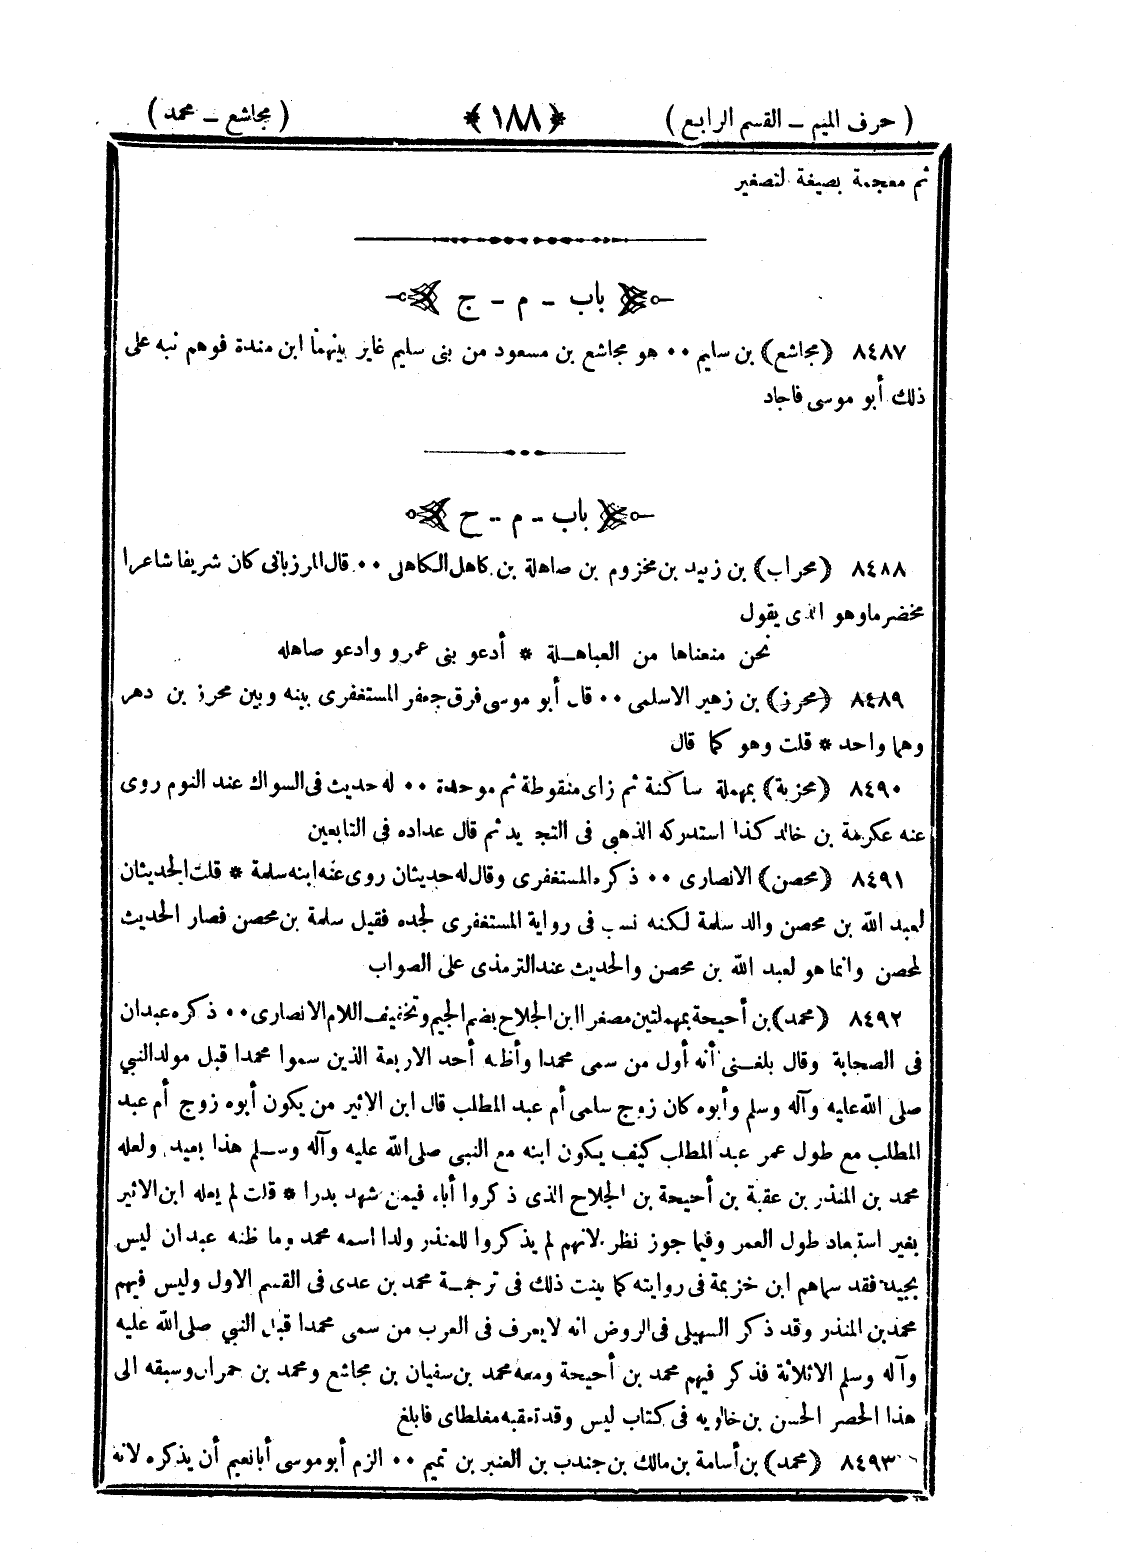 ( حرف الميم ــ القسم الرابع ) ﴿ ١٨٨ ﴾ ( مجاشع ــ محمد )
ثم معجمة بصيغة لتصغير
باب - م - ج
٨٤٨٧ ﴿ مجاشع ﴾ بن سليم ٠٠ هو مجاشع بن مسعود من بنى سليم غاير بينهما ابن مندة فوهم نبه على
ذلك أبو موسى فاجاد
باب - م - ح
٨٤٨٨ ﴿ محراب ﴾ بن زبيد بن مخزوم بن صاهلة بن كاهل الكاهلى ٠٠ قال المرزبانى كان شريفا شاعرا
مخضرما وهو الذى يقول
نحن منعناها من العباهــلة * أدعو بنى عمرو وادعو صاهله
٨٤٨٩ ﴿ محرز ﴾ بن زهير الاسلمى ٠٠ قال أبو موسى فرق جعفر المستغفرى بينه وبين محرز بن دهر
وهما واحد * قلت وهو كما قال
٨٤٩٠ ﴿ محزبة ﴾ بمهملة ساكنة ثم زاى منقوطة ثم موحدة ٠٠ له حديث فى السواك عند النوم روى
عنه عكرمة بن خالد كذا استدركه الذهبى فى التجريد ثم قال عداده فى التابعين
٨٤٩١ ﴿ محصن ﴾ الانصارى ٠٠ ذكره المستغفرى وقال له حديثان روى عنه ابنه سلمة * قلت الحديثان
لعبد الله بن محصن والد سلمة لكنه نسب فى رواية المستغفرى لجده فقيل سلمة بن محصن فصار الحديث
لمحصن وانما هو لعبد الله بن محصن والحديث عند الترمذى على الصواب
٨٤٩٢ ﴿ محمد ﴾ بن أحيحة بمهملتين مصغرا ابن الجلاح بضم الجيم وتخفيف اللام الانصارى ٠٠ ذكره عبدان
فى الصحابة وقال بلغنى أنه أول من سمى محمدا وأظنه أحد الاربعة الذين سموا محمدا قبل مولد النبي
صلى الله عليه وآله وسلم وأبوه كان زوج سلمى أم عبد المطلب قال ابن الاثير من يكون أبوه زوج أم عبد
المطلب مع طول عمر عبد المطلب كيف يكون ابنه مع النبى صلى الله عليه وآله وسـلم هذا بعيد ولعله
محمد بن المنذر بن عقبة بن أحيحة بن الجلاح الذى ذكروا أباه فيمن شهد بدرا * قلت لم يعله ابن الاثير
بغير استبعاد طول العمر وفيما جوز نظر لانهم لم يذكروا للمنذر ولدا اسمه محمد وما ظنه عبدان ليس
بجيد فقد سماهم ابن خزيمة فى روايته كما بينت ذلك فى ترجمـة محمد بن عدى فى القسم الاول وليس فيهم
محمد بن المنذر وقد ذكر السهيلى فى الروض انه لا يعرف فى العرب من سمى محمدا قبل النبي صلى الله عليه
وآله وسلم الاثلاثة فذكر فيهم محمد بن أحيحة ومعه محمد بن سفيان بن مجاشع ومحمد بن حمران وسبقه الى
هذا الحصر الحسن بن خالويه فى كتاب ليس وقد تعقبه مغلطاى فابلغ
٨٤٩٣ ﴿ محمد ﴾ بن أسامة بن مالك بن جندب بن العنبر بن تميم ٠٠ الزم أبو موسى أبا نعيم أن يذكره لانه